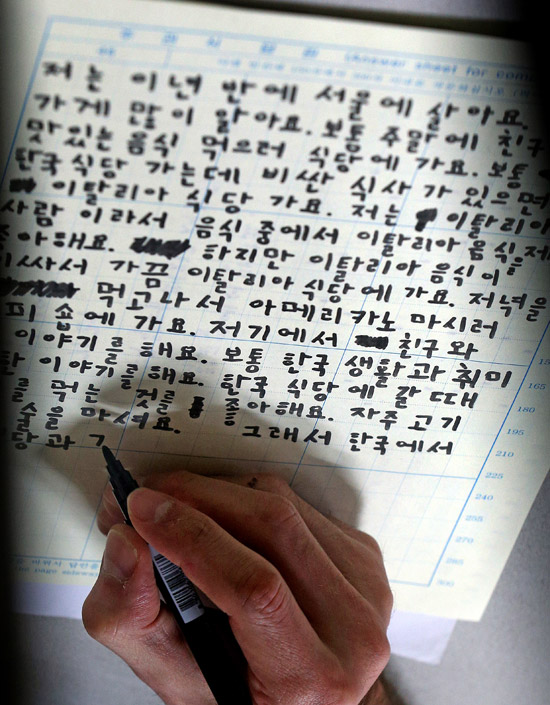 (Answer sheet for
저는 이년 반에 서울에 살아요.
가게 많이 알아요. 보통 주말에 친구
맛있는 음식 먹으러 식당에 가요. 보통
한국 식당 가는데 비싼 식사가 있으면
이탈리아 식당 가요. 저는 이탈리아
사람이라서 음식 중에서 이탈리아 음식을 제
아해요. 하지만 이탈리아 음식이
싸서 가끔 이탈리아 식당에 가요. 저녁을
먹고나서 아메리카노 마시러
피숍에 가요. 저기에서 친구와
이야기를 해요. 보통 한국 생활과 취미
이야기를 해요. 한국 식당에 갈 때
를 먹는 것을 좋아해요. 자주 고기
술을 마셔요. 그래서 한국에서
당과
165
180
195
210
225
240
255
270
285
300